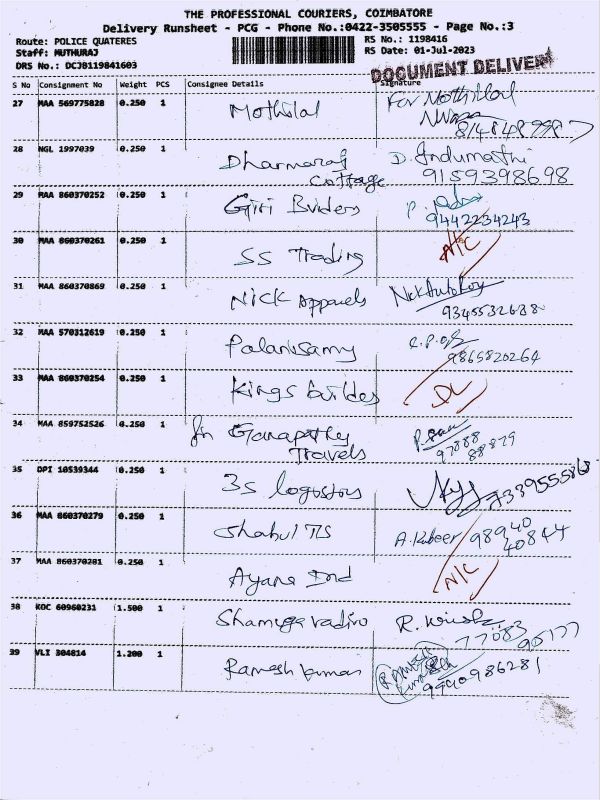 THE PROFESSIONAL COURIERS, COIMBATORE
Delivery Runsheet - PCG - Phone No.:0422-3505555 - Page No.:3
Route: POLICE QUATERES RS No.: 1198416
Staff: MUTHURAJ RS Date: 01-Jul-2023
DRS No.: DCJB119841603
DOCUMENT DELIVERY
S No Consignment No Weight PCS Consignee Details Signature
27 MAA 569775828 0.250 1 Mothilal For Mothilal
28 NGL 1997039 0.250 1 Dharmaraj D. Indumathi
cottage 9159398698
29 MAA 860370252 0.250 1 Giri Bviders P.
9442234243
30 MAA 860370261 0.250 1 SS Trading
31 MAA 860370869 0.250 1 NICK Apparels
9345532688
32 MAA 570312619 0.250 1 Palanisamy
9865820264
33 MAA 860370254 0.250 1 Kings builder DL
34 MAA 859752526 0.250 1 Sri Ganapathy
Travels 97888
88879
35 DPI 10539344 0.250 1 3s logistics
36 MAA 860370279 0.250 1 Shabul TS A. Kabeer 98940
40844
37 MAA 860370281 0.250 1 N/C
38 KOC 60960231 1.500 1 Shamuga vadivu R.
77083
95177
39 VLI 304814 1.200 1 Ramesh kumar
9940986281